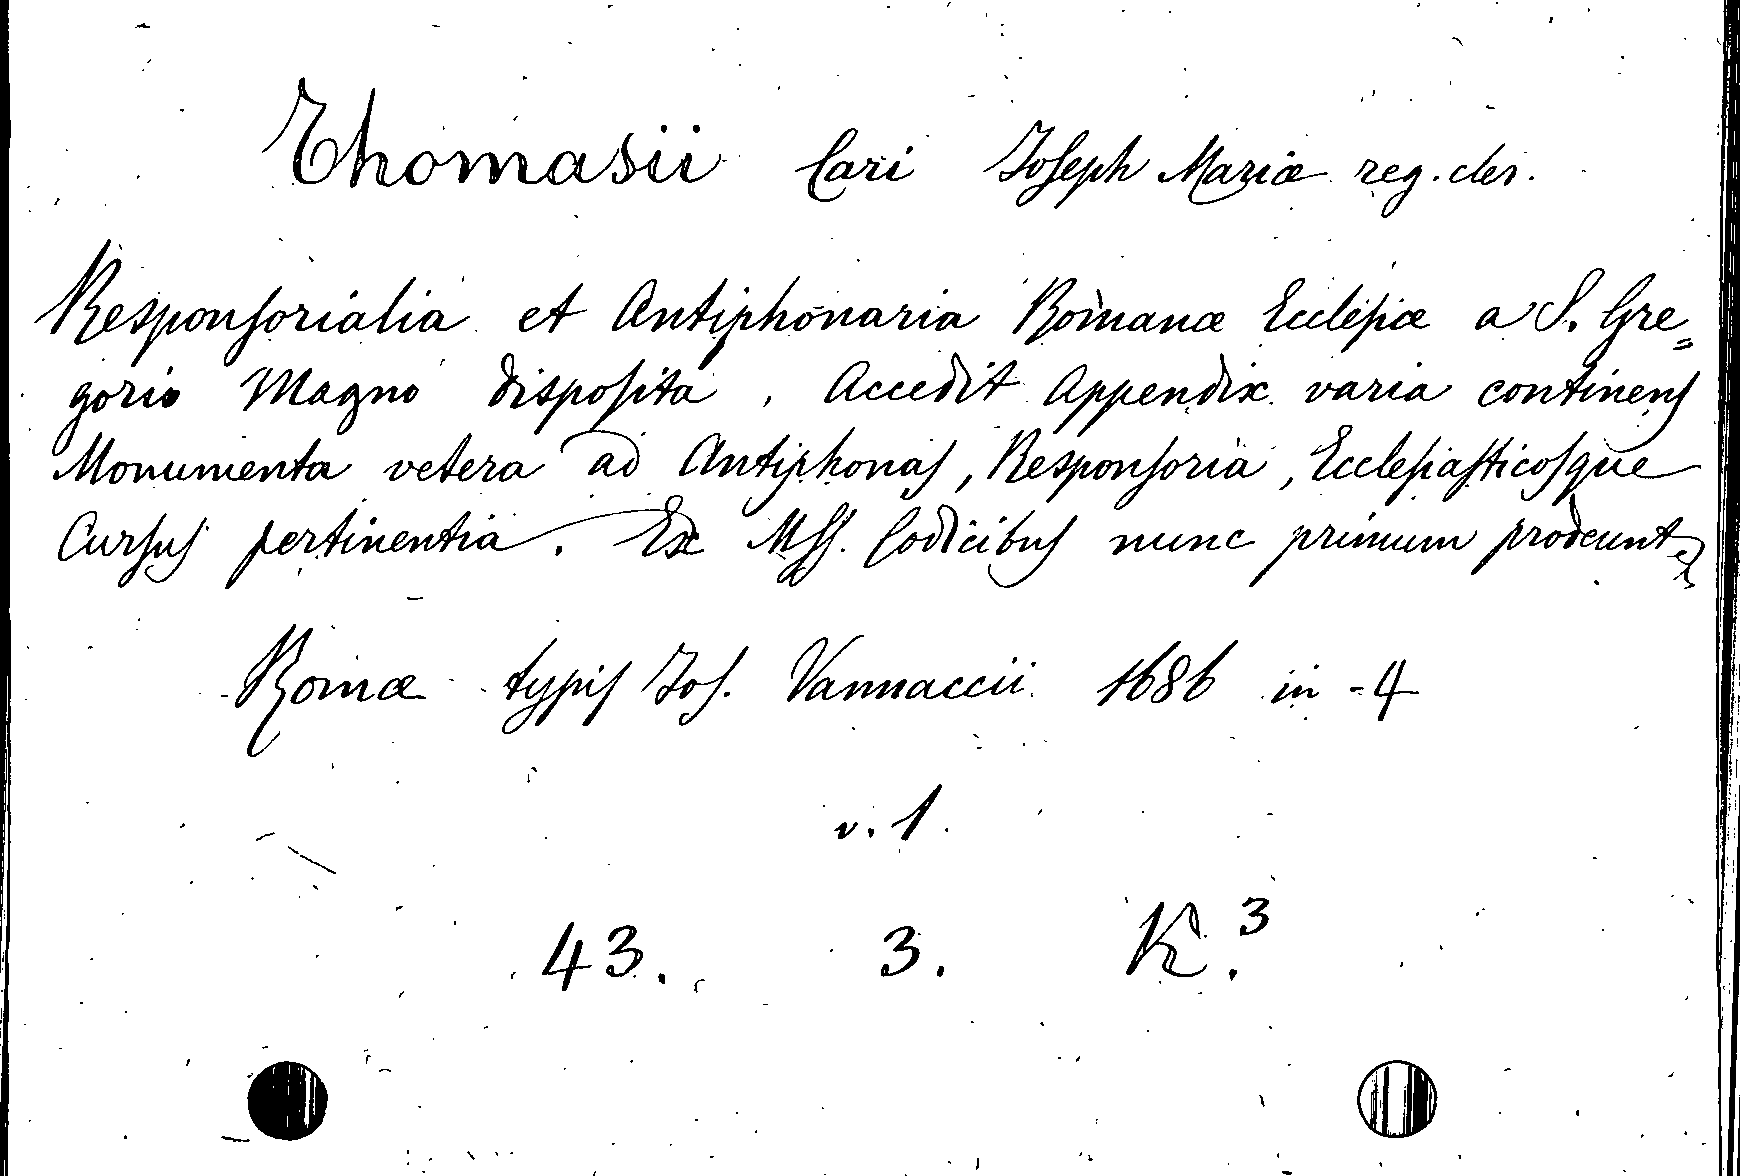 Thomasii Cari Joseph Mariæ reg. cler.
Responsorialia et Antiphonaria Romanæ Ecclesiæ a S. Gre=
gorio Magno disposita, Accedit Appendix varia continens
Monumenta vetera ad Antiphonas, Responsoria, Ecclesiasticosque
Cursus pertinentia. Ex Mss. Codicibus nunc primum prodeunt
Romæ typis Jos. Vannaccii 1686 in-4
v. 1.
43. 3. K.³